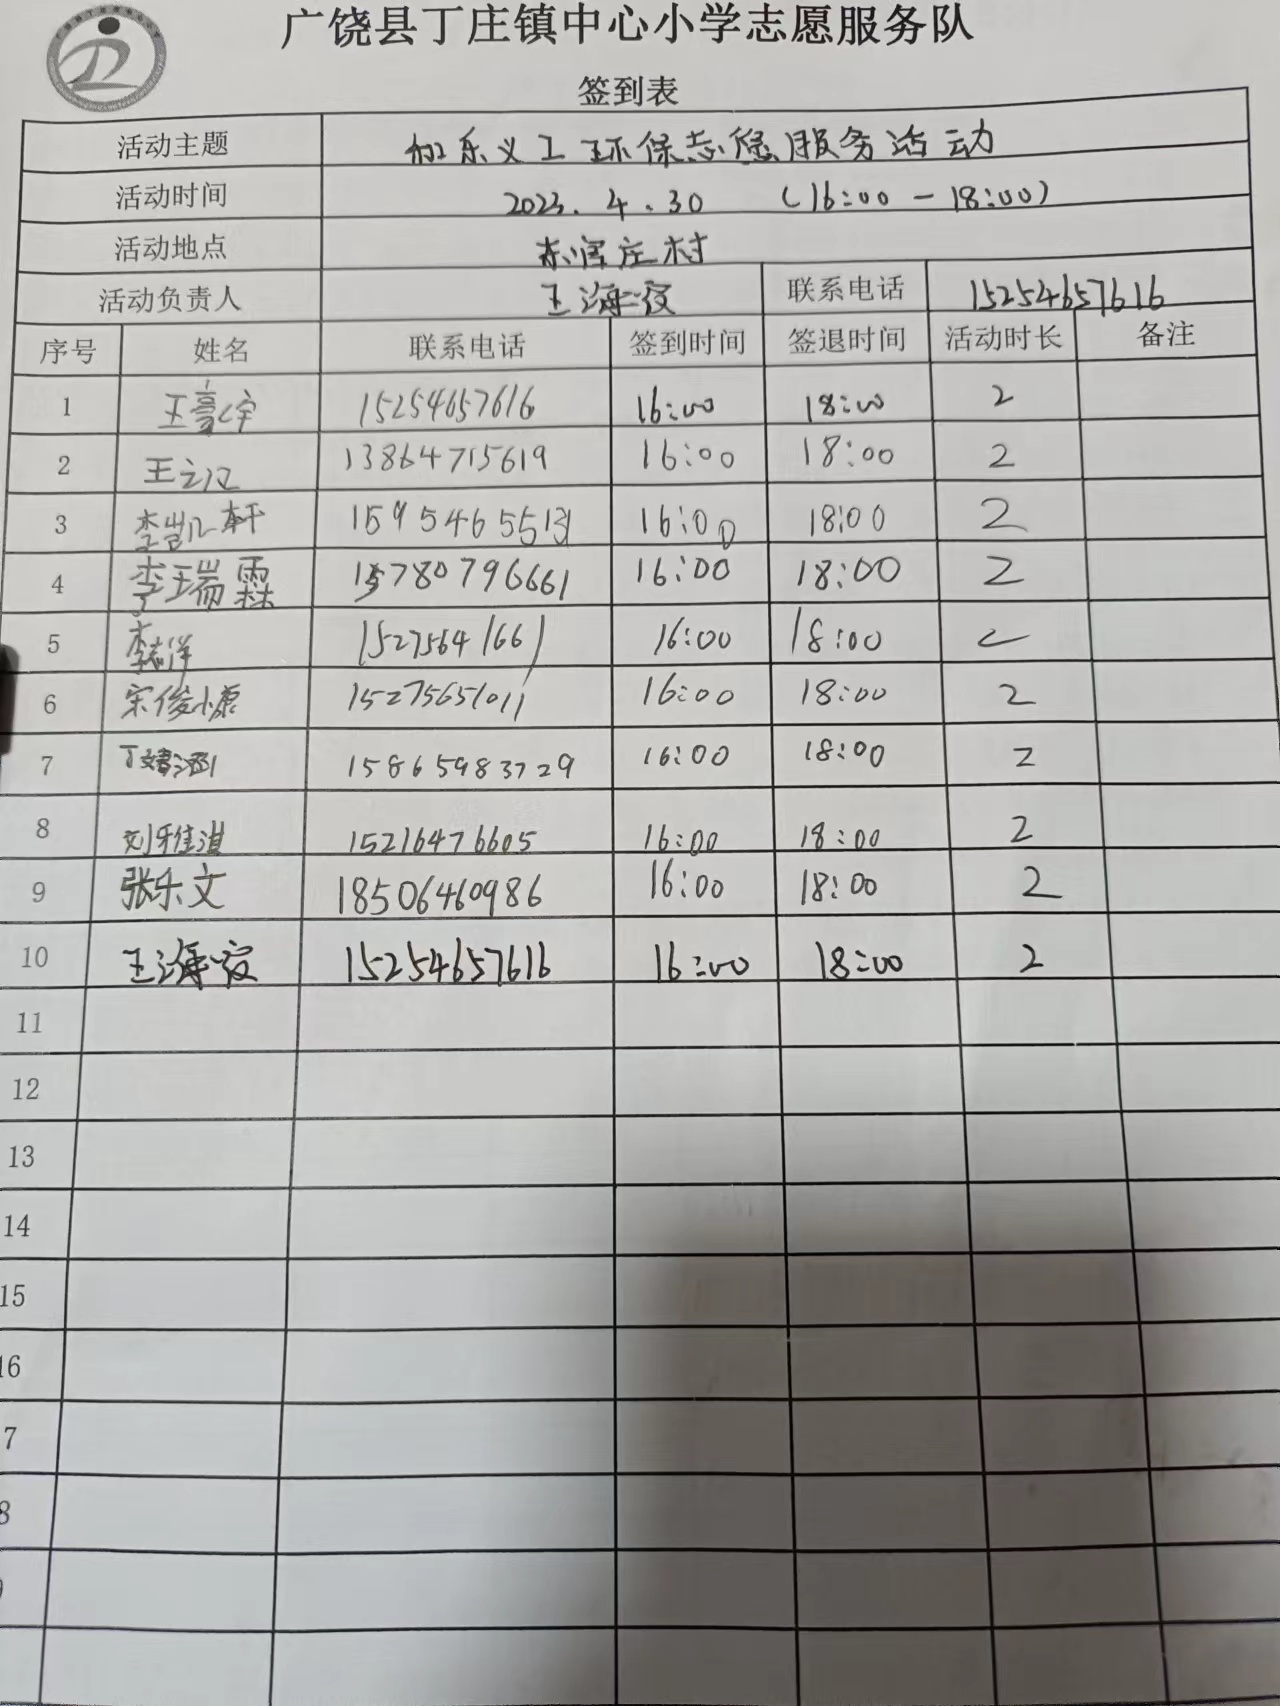 广饶县丁庄镇中心小学志愿服务队
签到表
活动主题 和乐义工环保志愿服务活动
活动时间 2023.4.30 (16:00-18:00)
活动地点 庄村
活动负责人 王海波 联系电话 15254657616
序号 姓名 联系电话 签到时间 签退时间 活动时长 备注
1 王豪宇 15254657616 16:00 18:00 2
2 王 13864715619 16:00 18:00 2
3 李凯轩 16:00 18:00 2
4 李瑞霖 15780796661 16:00 18:00 2
5 李 15275641661 16:00 18:00 2
6 宋俊康 15275651011 16:00 18:00 2
7 丁 15865983729 16:00 18:00 2
8 刘 15216476605 16:00 18:00 2
9 张乐文 18506460986 16:00 18:00 2
10 王海波 15254657616 16:00 18:00 2
11
12
13
14
15
16
7
8